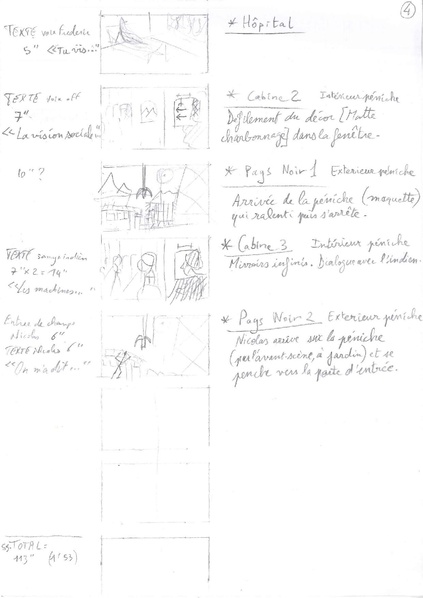 4
TEXTE voix Frederic
5" «Tu vis...»
* Hôpital
TEXTE voix off
7"
«La vision sociale...»
* Cabine 2 Intérieur péniche
Défilement du décor [Motte
charbonnage] dans la fenêtre.
10"?
* Pays Noir 1 Exterieur péniche
Arrivée de la péniche (maquette)
qui ralenti puis s'arrête.
TEXTE
7" x 2 = 14"
«Les machines...»
* Cabine 3 Intérieur péniche
Miroirs infinis. Dialogue avec l'indien.
Entrée de champ
Nicolas 6"
TEXTE Nicolas 6"
«On m'a dit...»
* Pays Noir 2 Exterieur péniche
Nicolas arrive sur la péniche
(par l'avant-scène, à jardin) et se
penche vers la porte d'entrée.
ss.TOTAL =
113" (1'53)